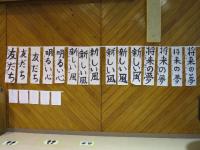 友だち
友だち
友だち
明るい心
明るい心
新しい風
新しい風
新しい風
新しい風
新しい風
将来の夢
将来の夢
将来の夢
将来の夢